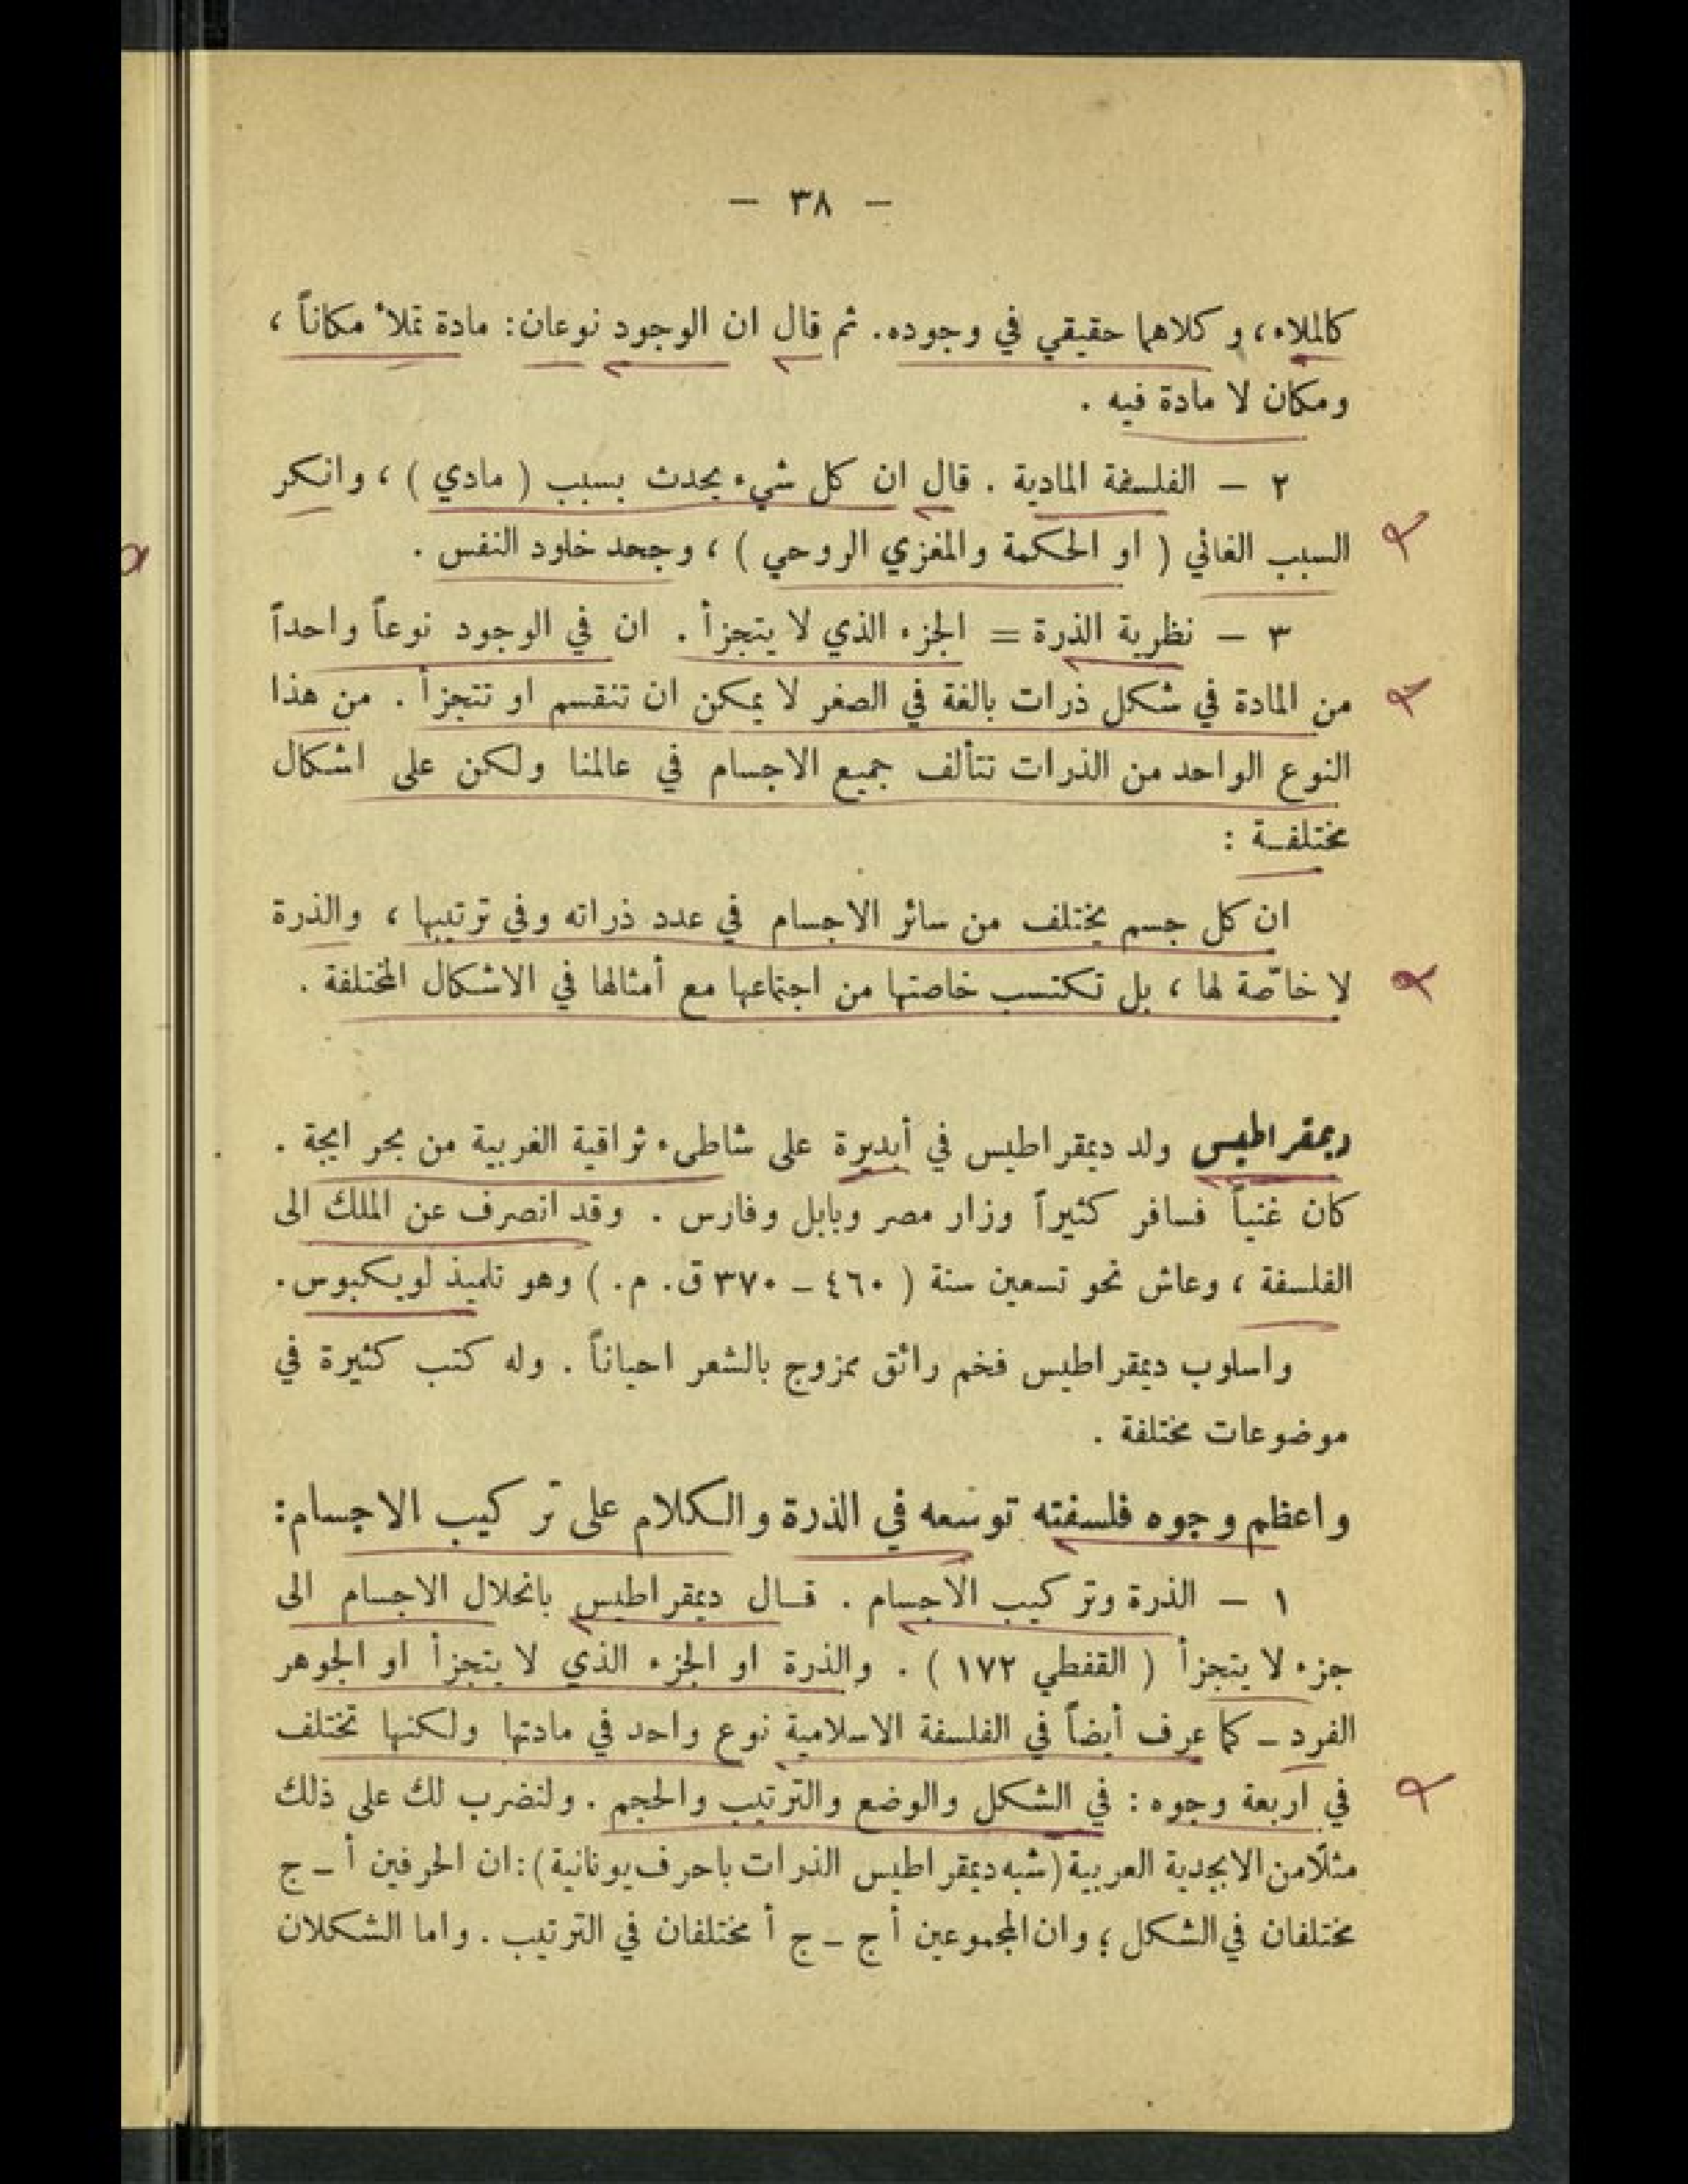 — ٣٨ —
كالملاء، وكلاهما حقيقي في وجوده. ثم قال ان الوجود نوعان: مادة تملأ مكاناً،
ومكان لا مادة فيه .
٢ — الفلسفة المادية . قال ان كل شيء يحدث بسبب ( مادي )، وانكر
السبب الغائي ( او الحكمة والمغزي الروحي )، وجحد خلود النفس .
٣ — نظرية الذرة = الجزء الذي لا يتجزأ . ان في الوجود نوعاً واحداً
من المادة في شكل ذرات بالغة في الصغر لا يمكن ان تنقسم او تتجزأ . من هذا
النوع الواحد من الذرات تتألف جميع الاجسام في عالمنا ولكن على اشكال
مختلفـة :
ان كل جسم يختلف من سائر الاجسام في عدد ذراته وفي ترتيبها، والذرة
لا خاصّة لها، بل تكتسب خاصتها من اجتماعها مع أمثالها في الاشكال المختلفة .
ديمقراطيس ولد ديمقراطيس في أبديرة على شاطىء ثراقية الغربية من بحر ايجة .
كان غنياً فسافر كثيراً وزار مصر وبابل وفارس . وقد انصرف عن الملك الى
الفلسفة، وعاش نحو تسعين سنة ( ٤٦٠ – ٣٧٠ ق. م. ) وهو تلميذ لويكبوس.
واسلوب ديمقراطيس فخم رائق ممزوج بالشعر احياناً . وله كتب كثيرة في
موضوعات مختلفة .
واعظم وجوه فلسفته توسعه في الذرة والكلام على تركيب الاجسام:
١ — الذرة وتركيب الاجسام . قـال ديمقراطيس بانحلال الاجسام الى
جزء لا يتجزأ ( القفطي ١٧٢ ) . والذرة او الجزء الذي لا يتجزأ او الجوهر
الفرد – كما عرف أيضاً في الفلسفة الاسلامية نوع واحد في مادتها ولكنها تختلف
في اربعة وجوه : في الشكل والوضع والترتيب والحجم . ولنضرب لك على ذلك
مثلًا من الابجدية العربية (شبه ديمقراطيس الذرات باحرف يونانية): ان الحرفين أ – ج
مختلفان في الشكل؛ وان المجموعين أ ج – ج أ مختلفان في الترتيب . واما الشكلان